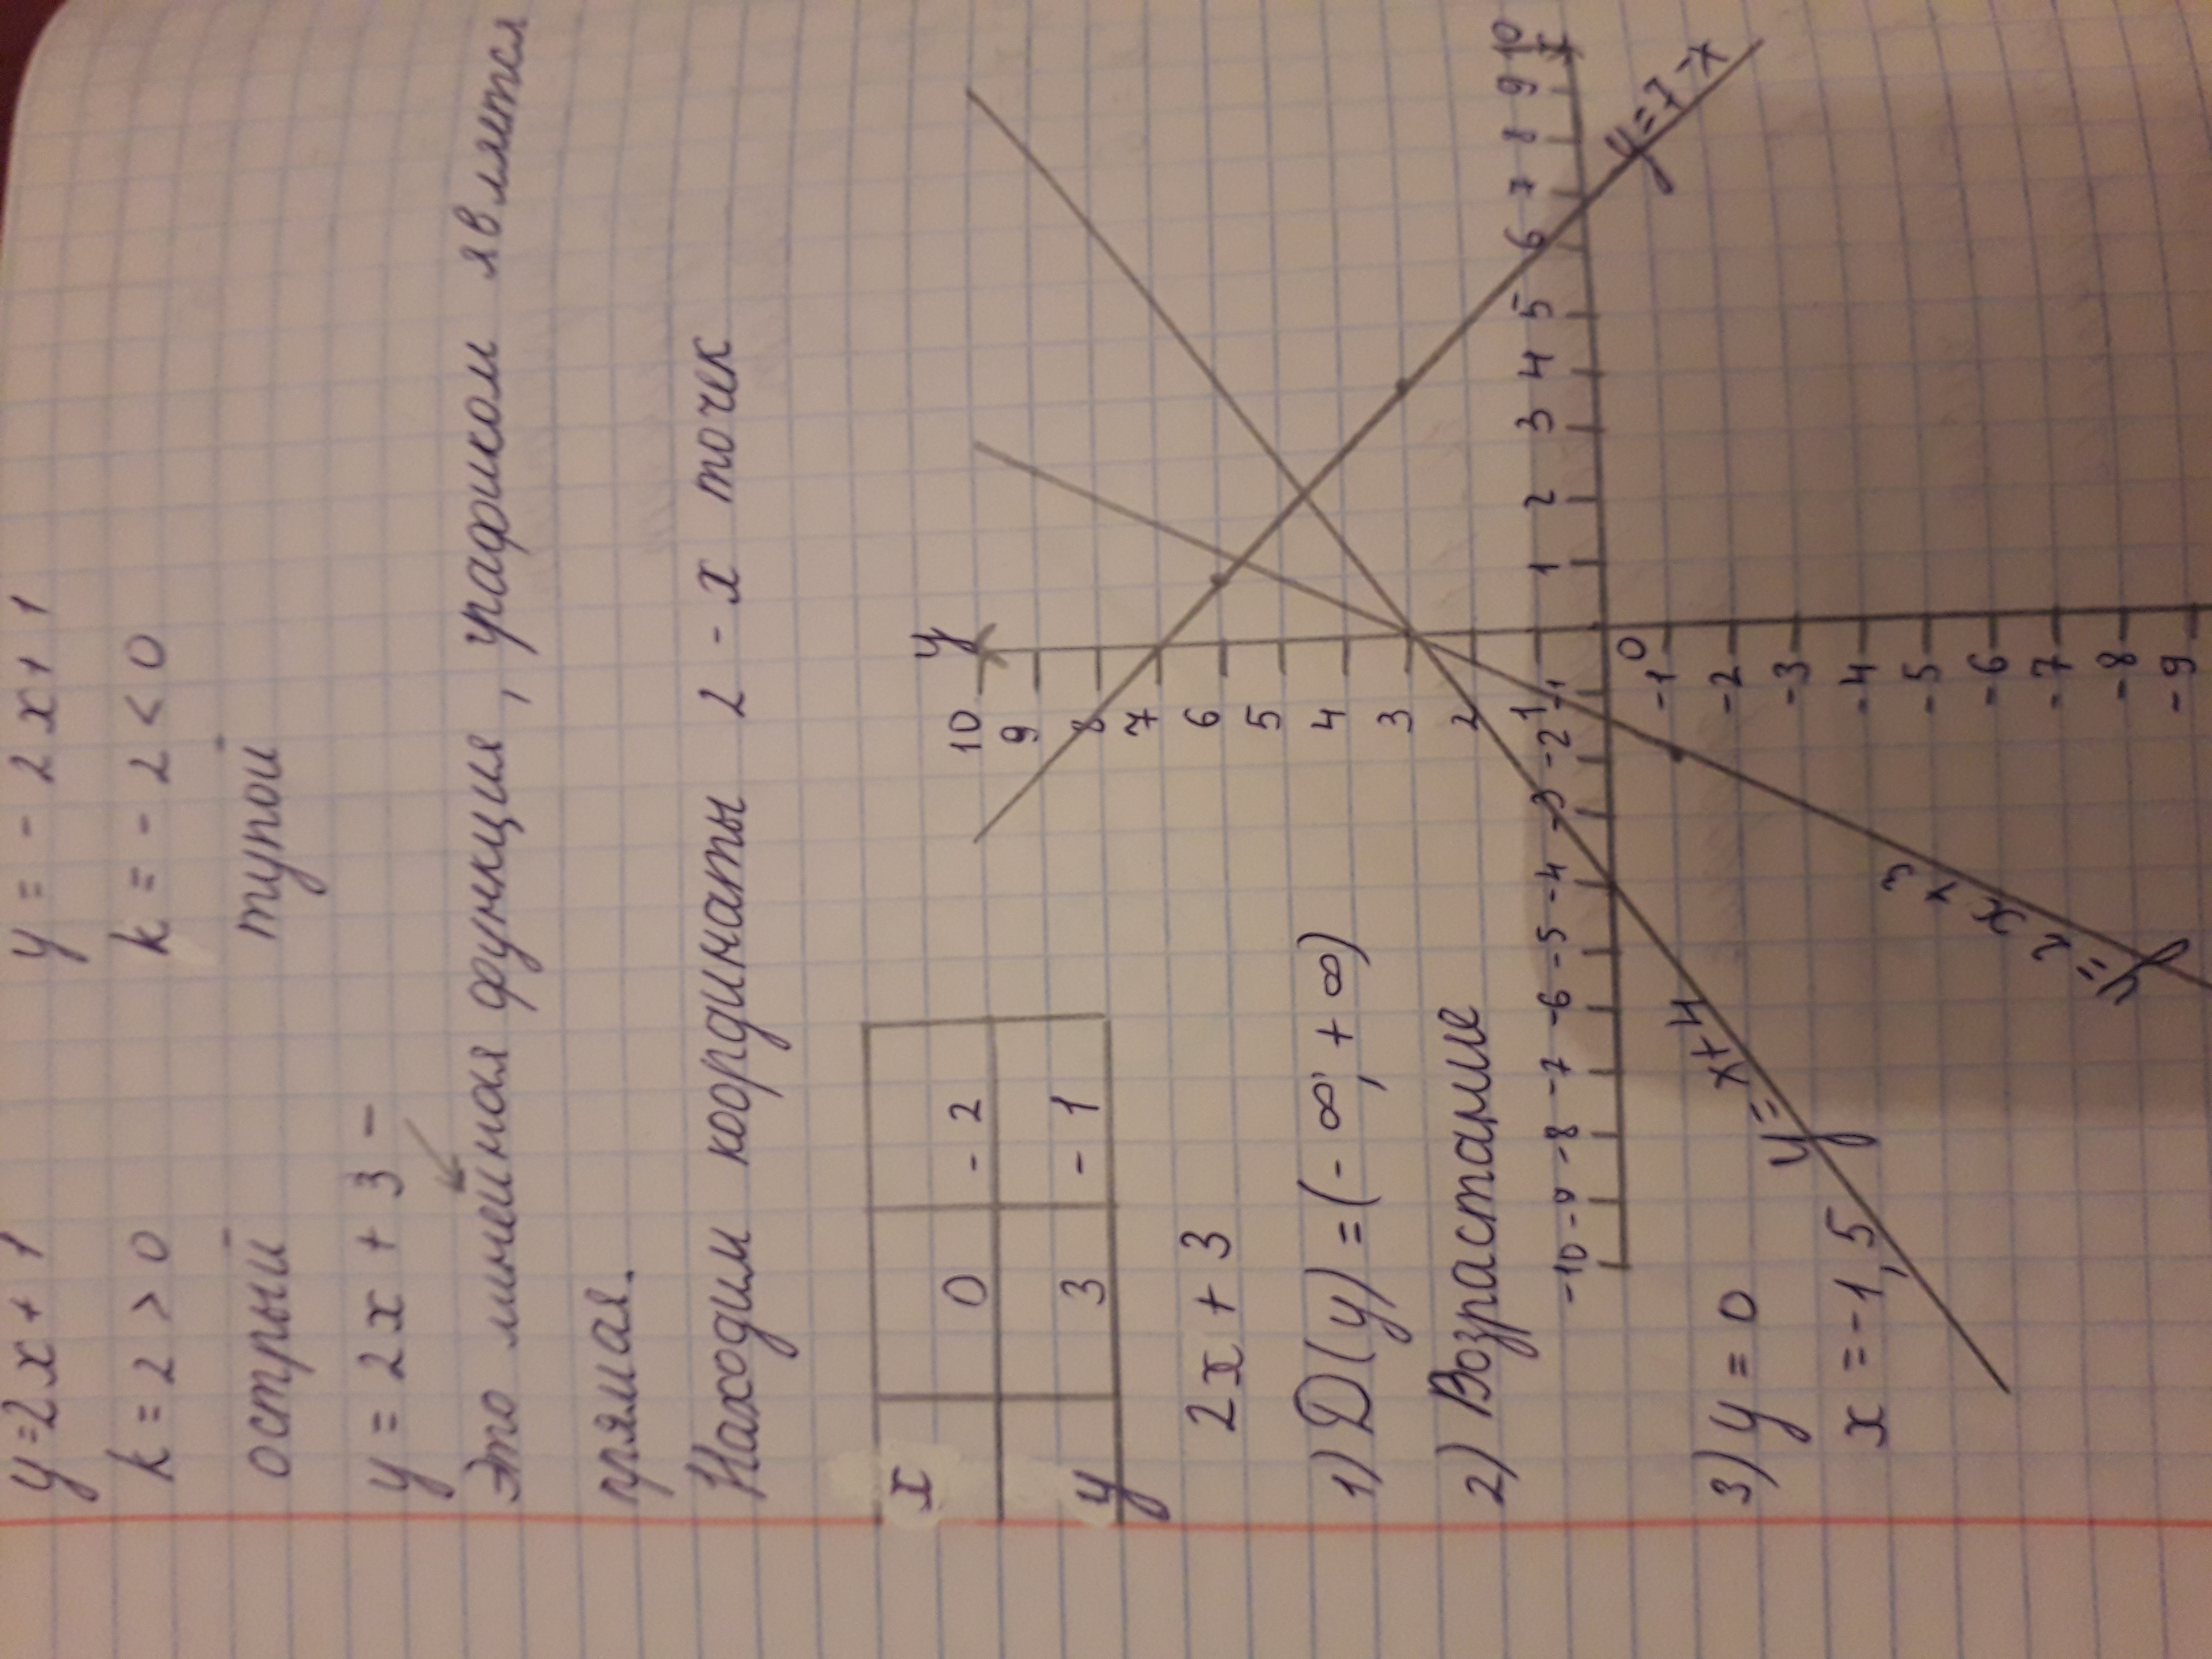 y=2x+1 y = - 2x+1
k = 2 > 0 k = - 2 < 0
острый тупой
y = 2x + 3 -
это линейная функция, графиком является
прямая.
Находим координаты 2-х точек
x 0 -2
y 3 -1
2x + 3
1) D(y) = (-∞; +∞)
2) Возрастание
3) y = 0
x = -1,5
y
10
9
8
7
6
5
4
3
2
1
-10 -9 -8 -7 -6 -5 -4 -3 -2 -1 0 1 2 3 4 5 6 7 8 9 10
x
-1
-2
-3
-4
-5
-6
-7
-8
-9
y=7-x
y= x+4
y= 2x+3